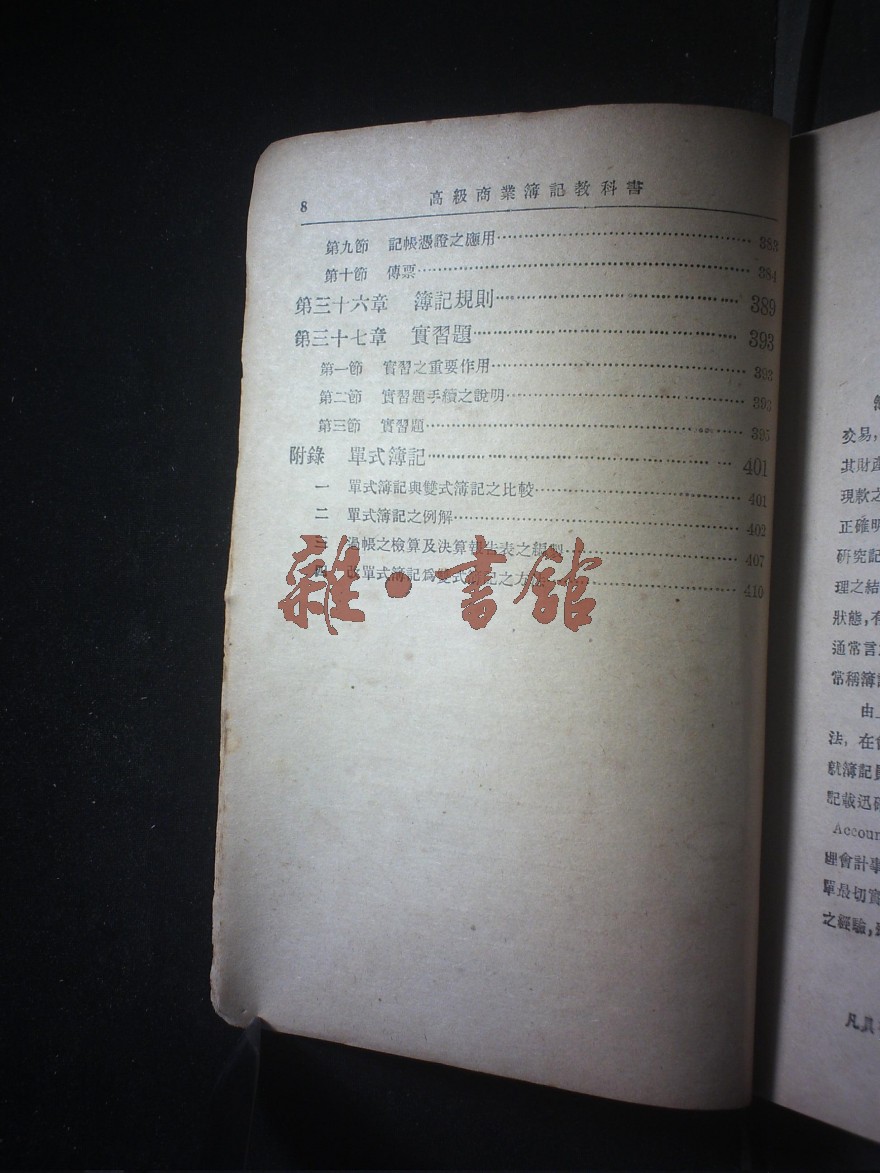 8 高級商業簿記教科書
第九節 記帳憑證之應用 383
第十節 傳票 384
第三十六章 簿記規則 389
第三十七章 實習題 393
第一節 實習之重要作用 393
第二節 實習題手續之說明 393
第三節 實習題 395
附錄 單式簿記 401
一 單式簿記與雙式簿記之比較 401
二 單式簿記之例解 402
三 過帳之檢算及決算報告表之編製 407
四 改單式簿記爲雙式簿記之方法 410
雜·書館
交易,
其財產
現款之
正確明
研究記
理之結
狀態,有
通常言
常稱簿記
由
法,在會
就簿記員
記載迅確
Accoun
理會計事
單最切實
之經驗,
凡具